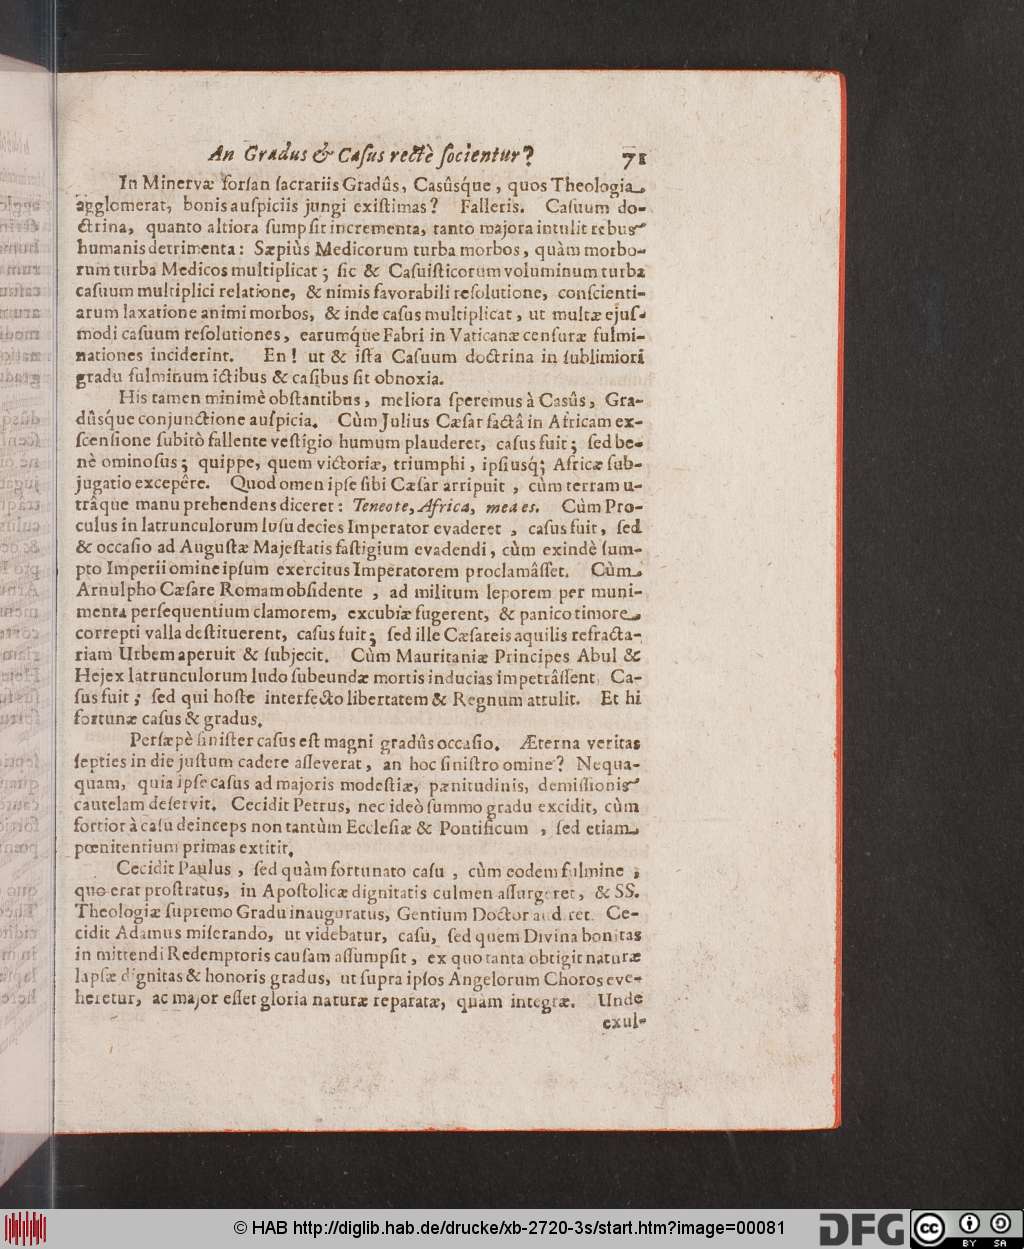 An Gradus & Caſus rectè ſocientur? 71
In Minervæ forſan ſacrariis Gradûs, Casûsq́ue, quos Theologia
agglomerat, bonis auſpiciis jungi exiſtimas? Falleris. Caſuum do-
ctrina, quanto altiora ſumpſit incrementa, tanto majora intulit rebus
humanis detrimenta: Sæpiùs Medicorum turba morbos, quàm morbo-
rum turba Medicos multiplicat; ſic & Caſuiſticorum voluminum turba
caſuum multiplici relatione, & nimis favorabili reſolutione, conſcienti-
arum laxatione animi morbos, & inde caſus multiplicat, ut multæ ejuſ-
modi caſuum reſolutiones, earumq́ue Fabri in Vaticanæ cenſuræ fulmi-
nationes inciderint. En! ut & iſta Caſuum doctrina in ſublimiori
gradu fulminum ictibus & caſibus ſit obnoxia.
His tamen minimè obſtantibus, meliora ſperemus à Casûs, Gra-
dûsq́ue conjunctione auſpicia. Cùm Julius Cæſar factâ in Africam ex-
ſcenſione ſubitò fallente veſtigio humum plauderet, caſus fuit; ſed be-
nè ominoſus; quippe, quem victoriæ, triumphi, ipſiusq́; Africæ ſub-
jugatio excepêre. Quod omen ipſe ſibi Cæſar arripuit, cùm terram u-
trâque manu prehendens diceret: Teneo te, Africa, mea es. Cùm Pro-
culus in latrunculorum luſu decies Imperator evaderet, caſus fuit, ſed
& occaſio ad Auguſtæ Majeſtatis faſtigium evadendi, cùm exindè ſum-
pto Imperii omine ipſum exercitus Imperatorem proclamâſſet. Cùm
Arnulpho Cæſare Romam obſidente, ad militum leporem per muni-
menta perſequentium clamorem, excubiæ fugerent, & panico timore
correpti valla deſtituerent, caſus fuit; ſed ille Cæſareis aquilis refracta-
riam Urbem aperuit & ſubjecit. Cùm Mauritaniæ Principes Abul &
Hejex latrunculorum ludo ſubeundæ mortis inducias impetrâſſent, Ca-
ſus fuit; ſed qui hoſte interfecto libertatem & Regnum attulit. Et hi
fortunæ caſus & gradus.
Perſæpè ſiniſter caſus eſt magni gradûs occaſio. Æterna veritas
ſepties in die juſtum cadere aſſeverat, an hoc ſiniſtro omine? Nequa-
quam, quia ipſe caſus ad majoris modeſtiæ, pænitudinis, demiſſionis
cautelam deſervit. Cecidit Petrus, nec ideò ſummo gradu excidit, cùm
fortior à caſu deinceps non tantùm Eccleſiæ & Pontificum, ſed etiam
pœnitentium primas extitit.
Cecidit Paulus, ſed quàm fortunato caſu, cùm eodem fulmine;
quo erat proſtratus, in Apoſtolicæ dignitatis culmen aſſurgeret, & SS.
Theologiæ ſupremo Gradu inauguratus, Gentium Doctor audiret. Ce-
cidit Adamus miſerando, ut videbatur, caſu, ſed quem Divina bonitas
in mittendi Redemptoris cauſam aſſumpſit, ex quo tanta obtigit naturæ
lapſæ dignitas & honoris gradus, ut ſupra ipſos Angelorum Choros eve-
heretur, ac major eſſet gloria naturæ reparatæ, quàm integræ. Unde
exul-
© HAB http://diglib.hab.de/drucke/xb-2720-3s/start.htm?image=00081
DFG
cc BY SA